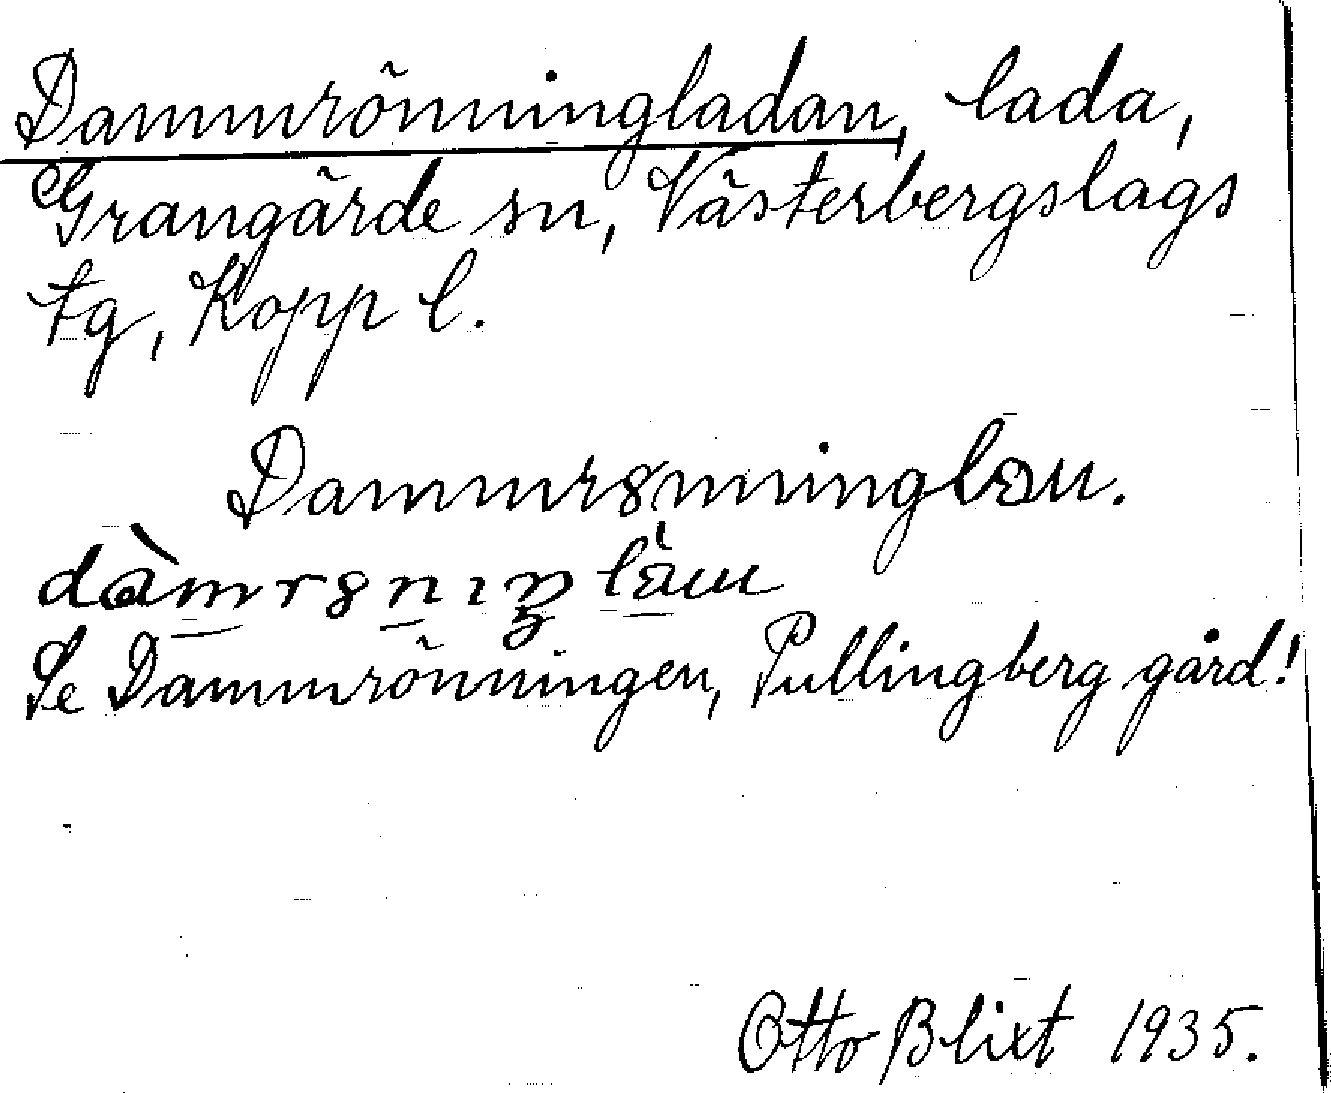 Dammrönningladan, lada,
Grangärde sn, Västerbergslags
tg, Kopp l.
Dammrȣnninglɔu.
dàmrȣnıŋ
Se Dammrönningen, Pullingberg gård!
Otto Blixt 1935.